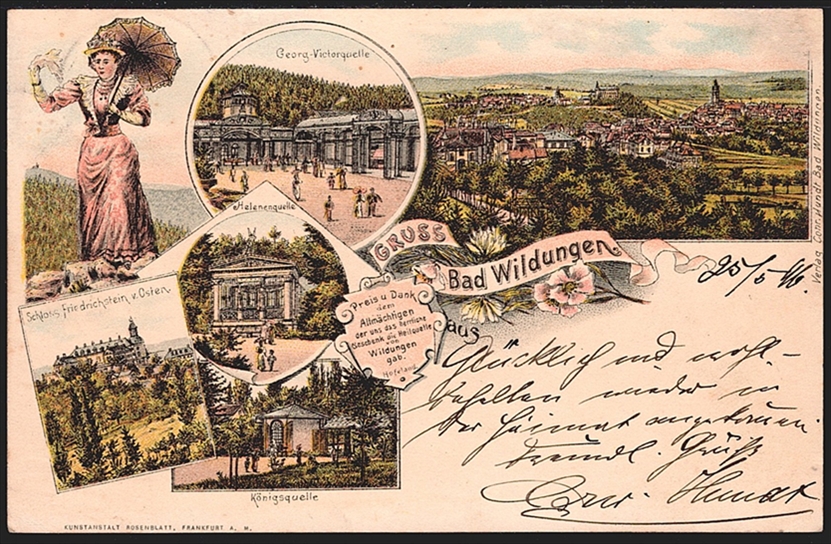 Georg-Victorquelle
Helenenquelle
Schloss Friedrichstein v. Osten.
Königsquelle
GRUSS
aus
Bad Wildungen.
Preis u. Dank
dem
Allmächtigen
der uns das herrliche
Geschenk die Heilquelle
von
Wildungen
gab.
Hufeland.
25/5
Glücklich und wohl-
behalten wieder in
der Heimat angekommen.
Freundl. Grüß
Conr. Hundt
Verlag Conr. Hundt Bad Wildungen.
KUNSTANSTALT ROSENBLATT, FRANKFURT A. M.